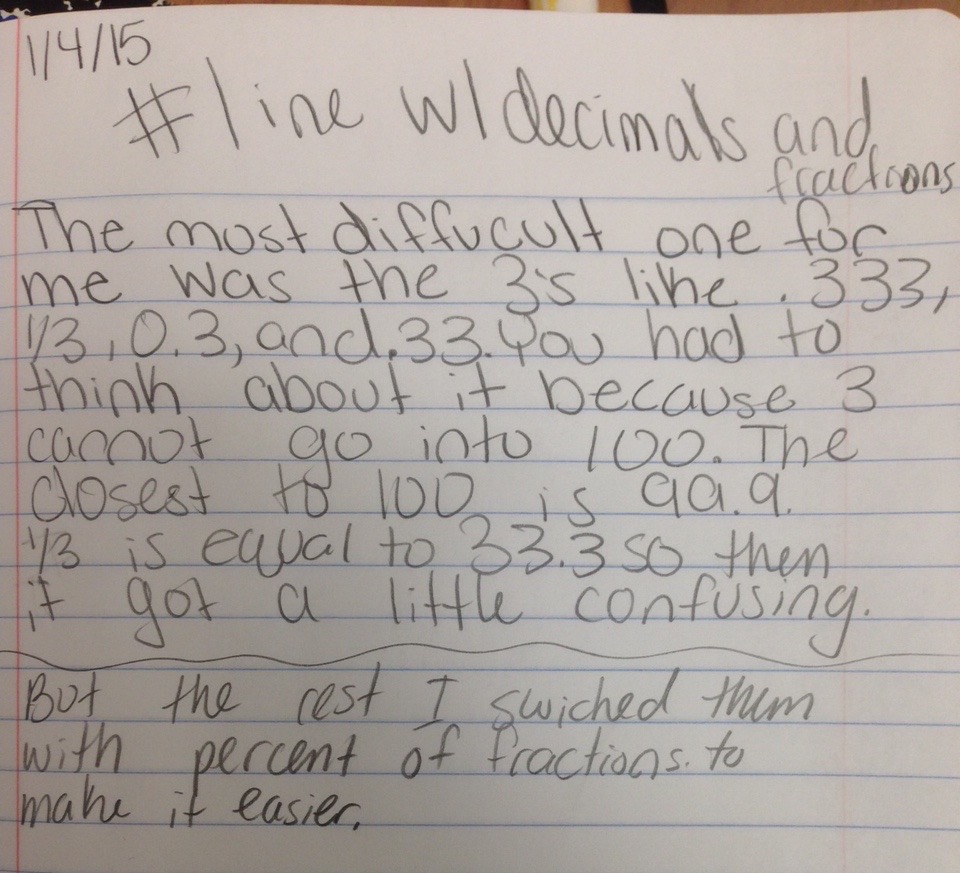 1/4/15
# line w/ decimals and
fractions
The most diffucult one for
me was the 3's like .333,
1/3, 0.3, and .33. You had to
think about it because 3
cannot go into 100. The
closest to 100 is 99.9.
1/3 is equal to 33.3 so then
it got a little confusing.
But the rest I swiched them
with percent of fractions. to
make it easier.